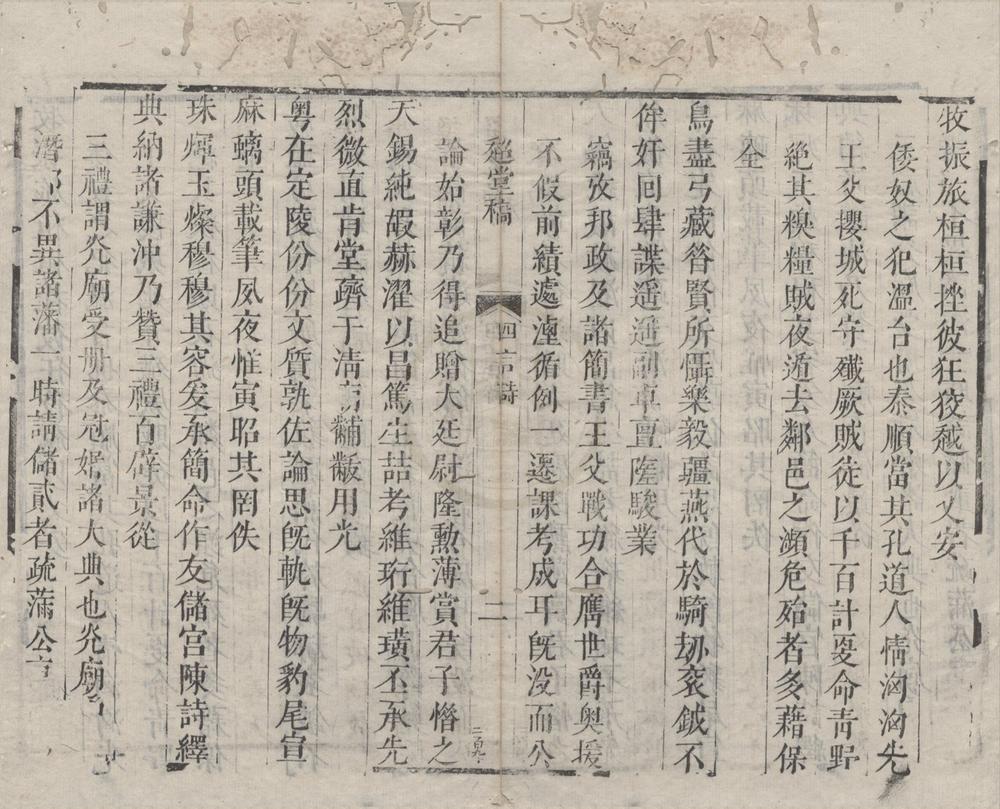 牧振旅桓桓挫彼狂狡越以乂安
倭奴之犯溫台也泰順當其孔道人情洶洶先
王父攖城死守殲厥賊徒以千百計憂命靑野
絶其糗糧賊夜遁去鄰邑之瀕危殆者多藉保
全
鳥盡弓藏笤賢所懾樂毅疆燕代於騎刼袞鉞不
侔奸回肆諜遥遷副卓亶隓駿業
竊攷邦政及諸簡書王父戰功合膺世爵奥援
不假前績遽湮循例一遷課考成耳旣没而公
堂稿
四言詩
二
論始彰乃得追贈大廷尉隆勲薄賞君子惜之
天錫純嘏赫濯以昌篤生喆考維珩維璜丕承先
烈微直肯堂躋于淸 黼黻用光
粤在定陵份份文質孰佐論思旣軌旣物豹尾宣
麻螭頭載筆夙夜惟寅昭其罔佚
珠煇玉燦穆穆其容爰承簡命作友儲宮陳詩繹
典納諸謙沖乃贊三禮百辟景從
三禮謂光廟受册及冠婚諸大典也光廟
潛邸不異諸藩一時請儲貳者疏滿公